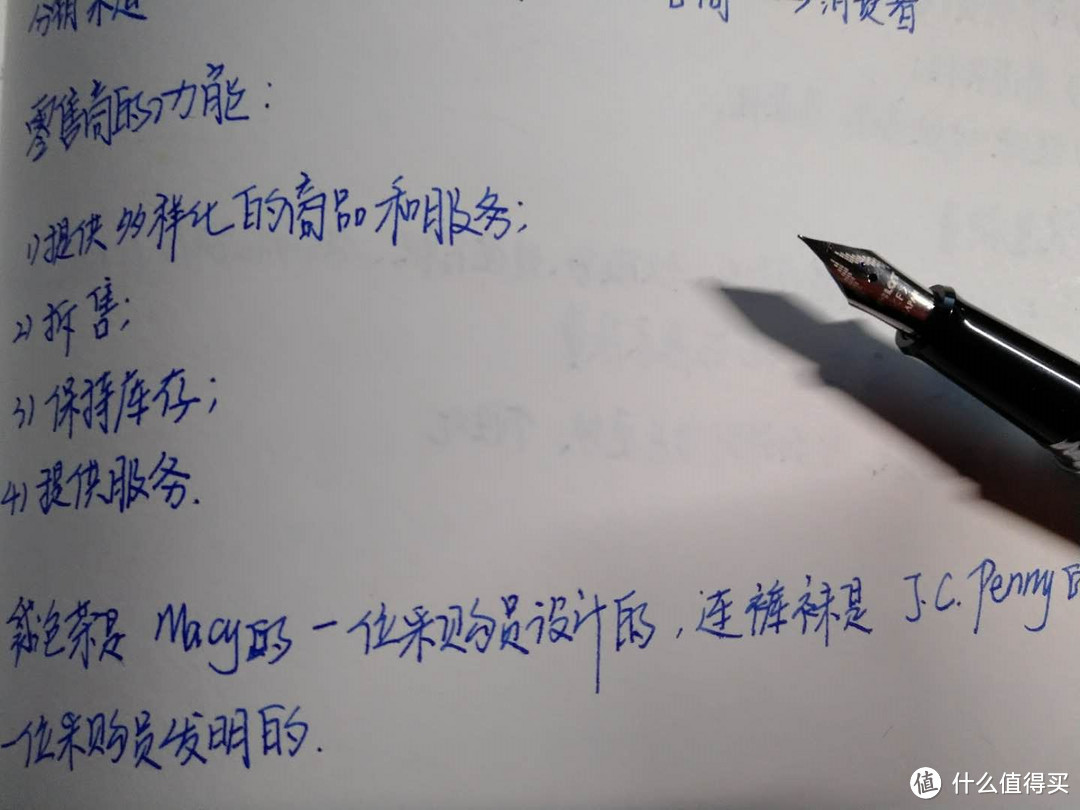 分销渠道 消费者
零售商的功能:
1)提供多样化的商品和服务;
2)拆售;
3)保持库存;
4)提供服务.
袋包茶是Macy的一位采购员设计的,连裤袜是J.C.Penny的
一位采购员发明的.
PILOT
值 什么值得买